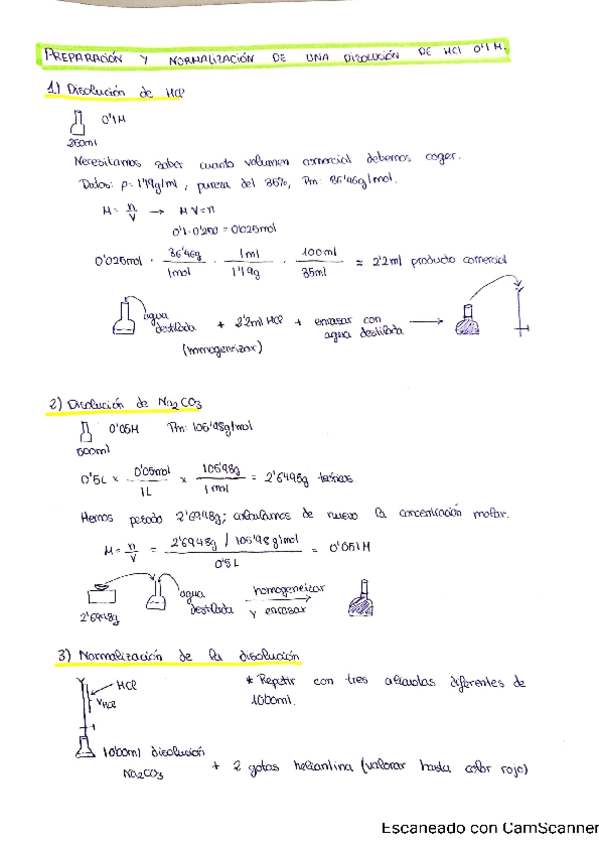 PREPARACIÓN Y NORMALIZACIÓN DE UNA DISOLUCIÓN DE HCl 0'1 M.
1.) Disolución de HCl
0'1M
250ml
Necesitamos saber cuanto volumen comercial debemos coger.
Datos: ρ= 1'19g/ml, pureza del 35%, Pm: 36'46g/mol.
M = n/V → MV=n
0'1·0'250 = 0'025mol
0'025mol · 36'46g/1mol · 1ml/1'19g · 100ml/35ml ≈ 2'2ml producto comercial
agua destilada + 2'2ml HCl + enrasar con agua destilada →
(homogeneizar)
2) Disolución de Na2CO3
0'05M Pm: 105'98g/mol
500ml
0'5L x 0'05mol/1L x 105'98g/1mol = 2'6495g teóricos
Hemos pesado 2'6948g; calculamos de nuevo la concentración molar.
M = n/V = 2'6948g / 105'98g/mol / 0'5L = 0'051M
agua destilada homogeneizar y enrasar
2'6948g
3) Normalización de la disolución
HCl
VHCl
* Repetir con tres alícuotas diferentes de
10'00ml.
10'00ml disolución Na2CO3 + 2 gotas heliantina (valorar hasta color rojo)
Escaneado con CamScanner